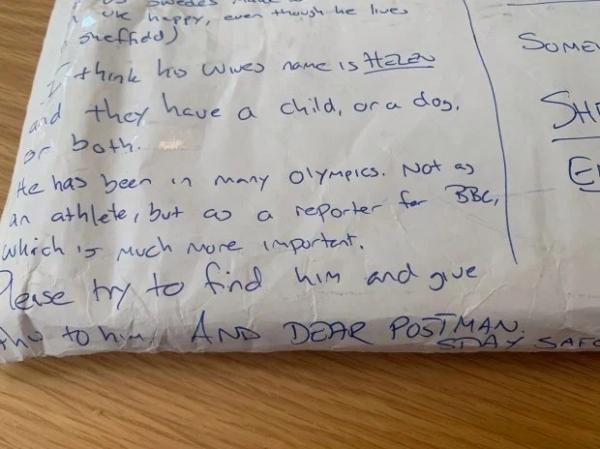 Swedes
UK happy, even though he lives
Sheffield)
I think his wives name is HELEN
and they have a child, or a dog,
or both.
He has been in many Olympics. Not as
an athlete, but as a reporter for BBC,
which is much more important.
Please try to find him and give
this to him. AND DEAR POSTMAN.
STAY SAFE
SOME
SH
E